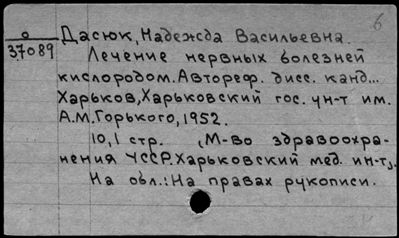 6
о Дасюк, Надежда Васильевна.
37089 Лечение нервных болезней
кислородом. Автореф. дисс. канд...
Харьков, Харьковский гос. ун-т им.
А.М. Горького, 1952.
10,1 стр. (М-во здравоохра-
нения УССР. Харьковский мед. ин-т).
На обл.: На правах рукописи.